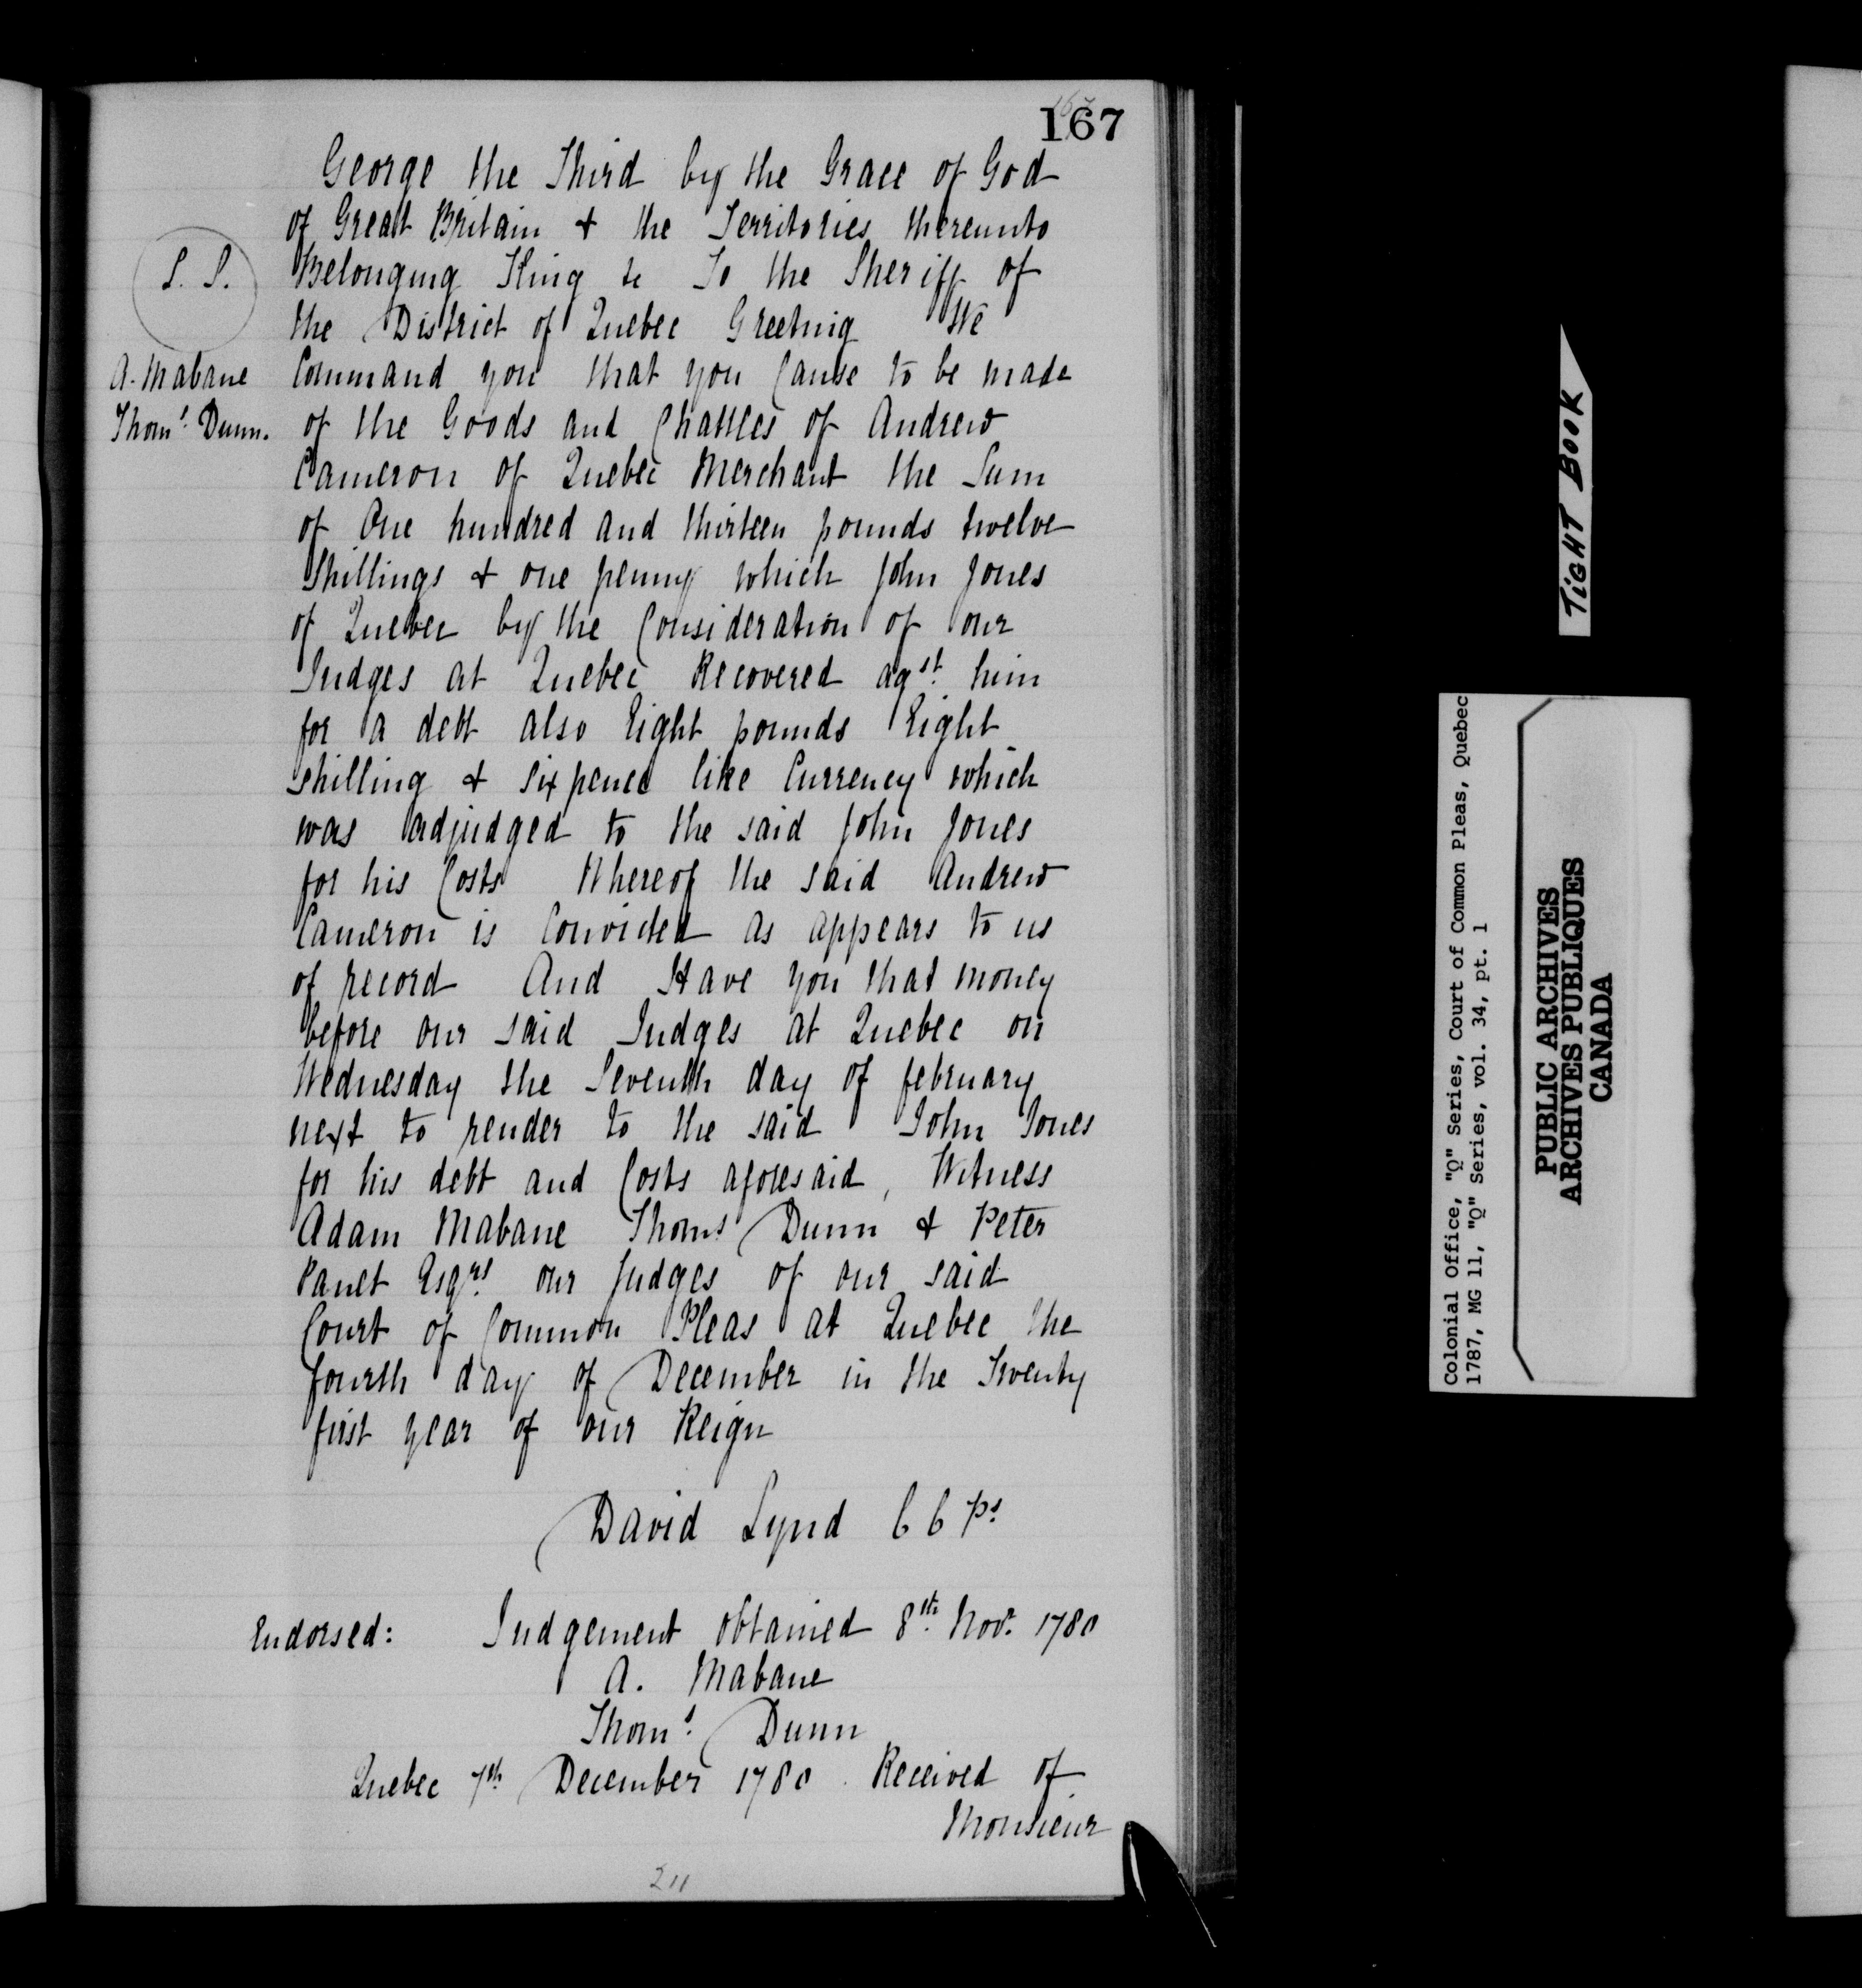 167
George the Third by the Grace of God
of Great Britain & the Territories thereunto
Belonging King &c To the Sheriff of
the District of Quebec Greeting We
Command you that you Cause to be made
of the Goods and Chattles of Andrew
Cameron of Quebec Merchant the Sum
of One hundred and thirteen pounds twelve
Shillings & one penny which John Jones
of Quebec by the Consideration of our
Judges at Quebec Recovered agst. him
for a debt also Eight pounds Eight
shilling & sixpence like Currency which
was adjudged to the said John Jones
for his Costs Whereof the said Andrew
Cameron is Convicted as appears to us
of record And Have you that money
before our said Judges at Quebec on
Wednesday the Seventh day of february
next to render to the said John Jones
for his debt and Costs aforesaid, Witness
Adam Mabane Thoms Dunn & Peter
Panet Esqrs. our Judges of our said
Court of Common Pleas at Quebec the
fourth day of December in the Twenty
first year of our Reign
David Lynd C C Ps.
L. S.
A. Mabane
Thoms. Dunn.
Endorsed: Judgement obtained 8th. Novr. 1780
A. Mabane
Thoms. Dunn
Quebec 7th December 1780. Received of
Monsieur
211
TIGHT BOOK
Colonial Office, "Q" Series, Court of Common Pleas, Quebec
1787, MG 11, "Q" Series, vol. 34, pt. 1
PUBLIC ARCHIVES
ARCHIVES PUBLIQUES
CANADA